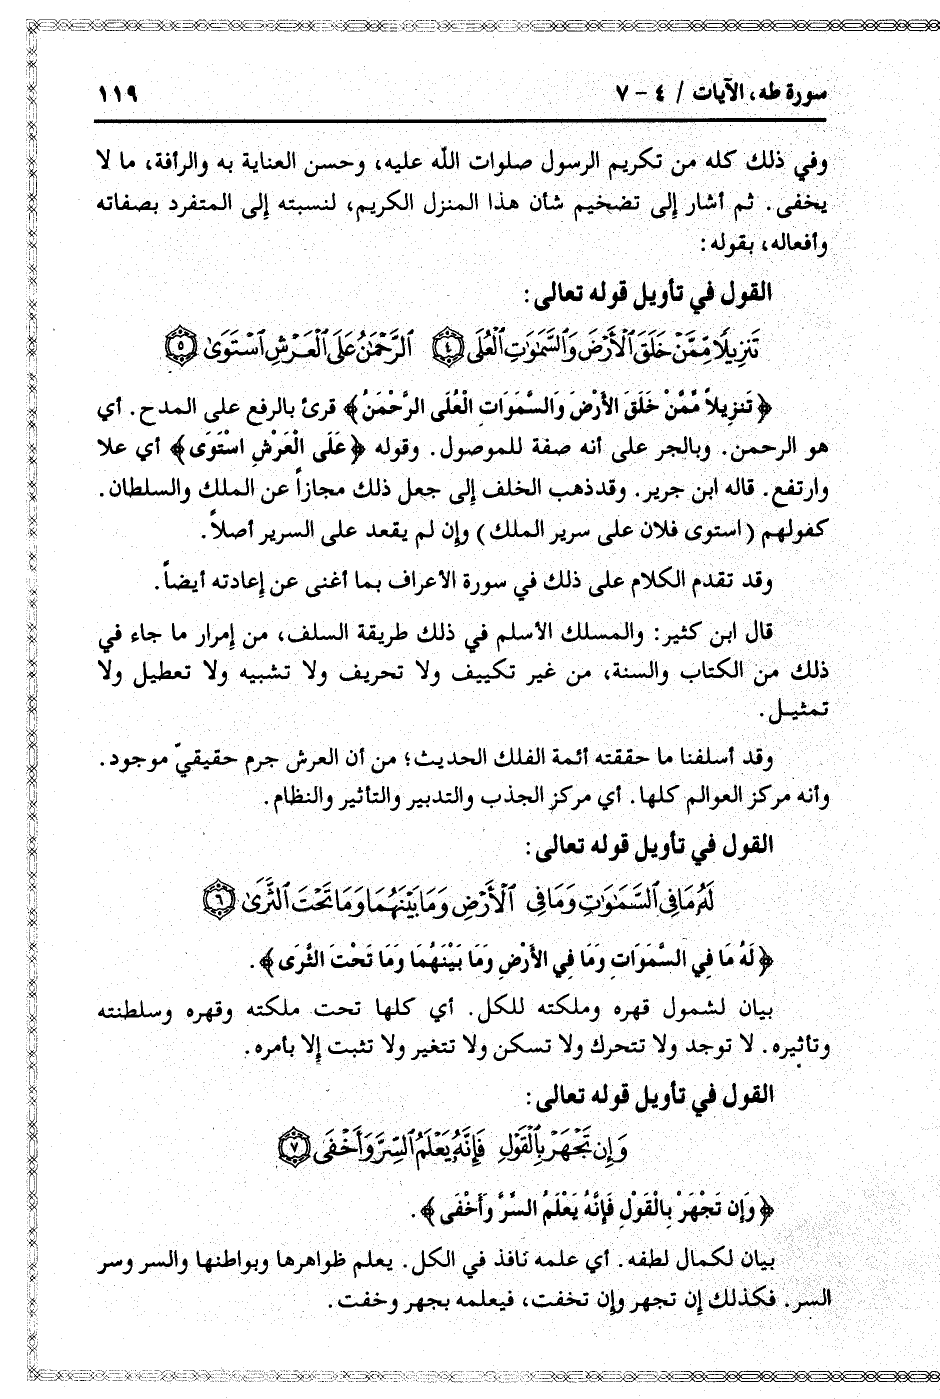 سورة طه، الآيات / ٤ - ٧ ١١٩
وفي ذلك كله من تكريم الرسول صلوات الله عليه، وحسن العناية به والرأفة، ما لا
يخفى. ثم أشار إلى تضخيم شأن هذا المنزل الكريم، لنسبته إلى المتفرد بصفاته
وأفعاله، بقوله:
القول في تأويل قوله تعالى:
تَنزِيلًا مِّمَّنْ خَلَقَ ٱلْأَرْضَ وَٱلسَّمَٰوَٰتِ ٱلْعُلَى ٤ ٱلرَّحْمَٰنُ عَلَى ٱلْعَرْشِ ٱسْتَوَىٰ ٥
﴿تَنزِيلاً مِّمَّنْ خَلَقَ الأَرْضَ وَالسَّمَوَاتِ الْعُلَى الرَّحْمَنُ﴾ قرئ بالرفع على المدح. أي
هو الرحمن. وبالجر على أنه صفة للموصول. وقوله ﴿عَلَى الْعَرْشِ اسْتَوَى﴾ أي علا
وارتفع. قاله ابن جرير. وقدذهب الخلف إلى جعل ذلك مجازاً عن الملك والسلطان.
كفولهم (استوى فلان على سرير الملك) وإن لم يقعد على السرير أصلاً.
وقد تقدم الكلام على ذلك في سورة الأعراف بما أغنى عن إعادته أيضاً.
قال ابن كثير: والمسلك الأسلم في ذلك طريقة السلف، من إمرار ما جاء في
ذلك من الكتاب والسنة، من غير تكييف ولا تحريف ولا تشبيه ولا تعطيل ولا
تمثيل.
وقد أسلفنا ما حققته أئمة الفلك الحديث؛ من أن العرش جرم حقيقيّ موجود.
وأنه مركز العوالم كلها. أي مركز الجذب والتدبير والتأثير والنظام.
القول في تأويل قوله تعالى:
لَهُۥ مَا فِى ٱلسَّمَٰوَٰتِ وَمَا فِى ٱلْأَرْضِ وَمَا بَيْنَهُمَا وَمَا تَحْتَ ٱلثَّرَىٰ ٦
﴿لَهُ مَا فِي السَّمَوَاتِ وَمَا فِي الأَرْضِ وَمَا بَيْنَهُمَا وَمَا تَحْتَ الثَّرَى﴾.
بيان لشمول قهره وملكته للكل. أي كلها تحت ملكته وقهره وسلطنته
وتأثيره. لا توجد ولا تتحرك ولا تسكن ولا تتغير ولا تثبت إلا بأمره.
القول في تأويل قوله تعالى:
وَإِن تَجْهَرْ بِٱلْقَوْلِ فَإِنَّهُۥ يَعْلَمُ ٱلسِّرَّ وَأَخْفَى ٧
﴿وَإِن تَجْهَرْ بِالْقَوْلِ فَإِنَّهُ يَعْلَمُ السِّرَّ وَأَخْفَى﴾.
بيان لكمال لطفه. أي علمه نافذ في الكل. يعلم ظواهرها وبواطنها والسر وسر
السر. فكذلك إن تجهر وإن تخفت، فيعلمه بجهر وخفت.